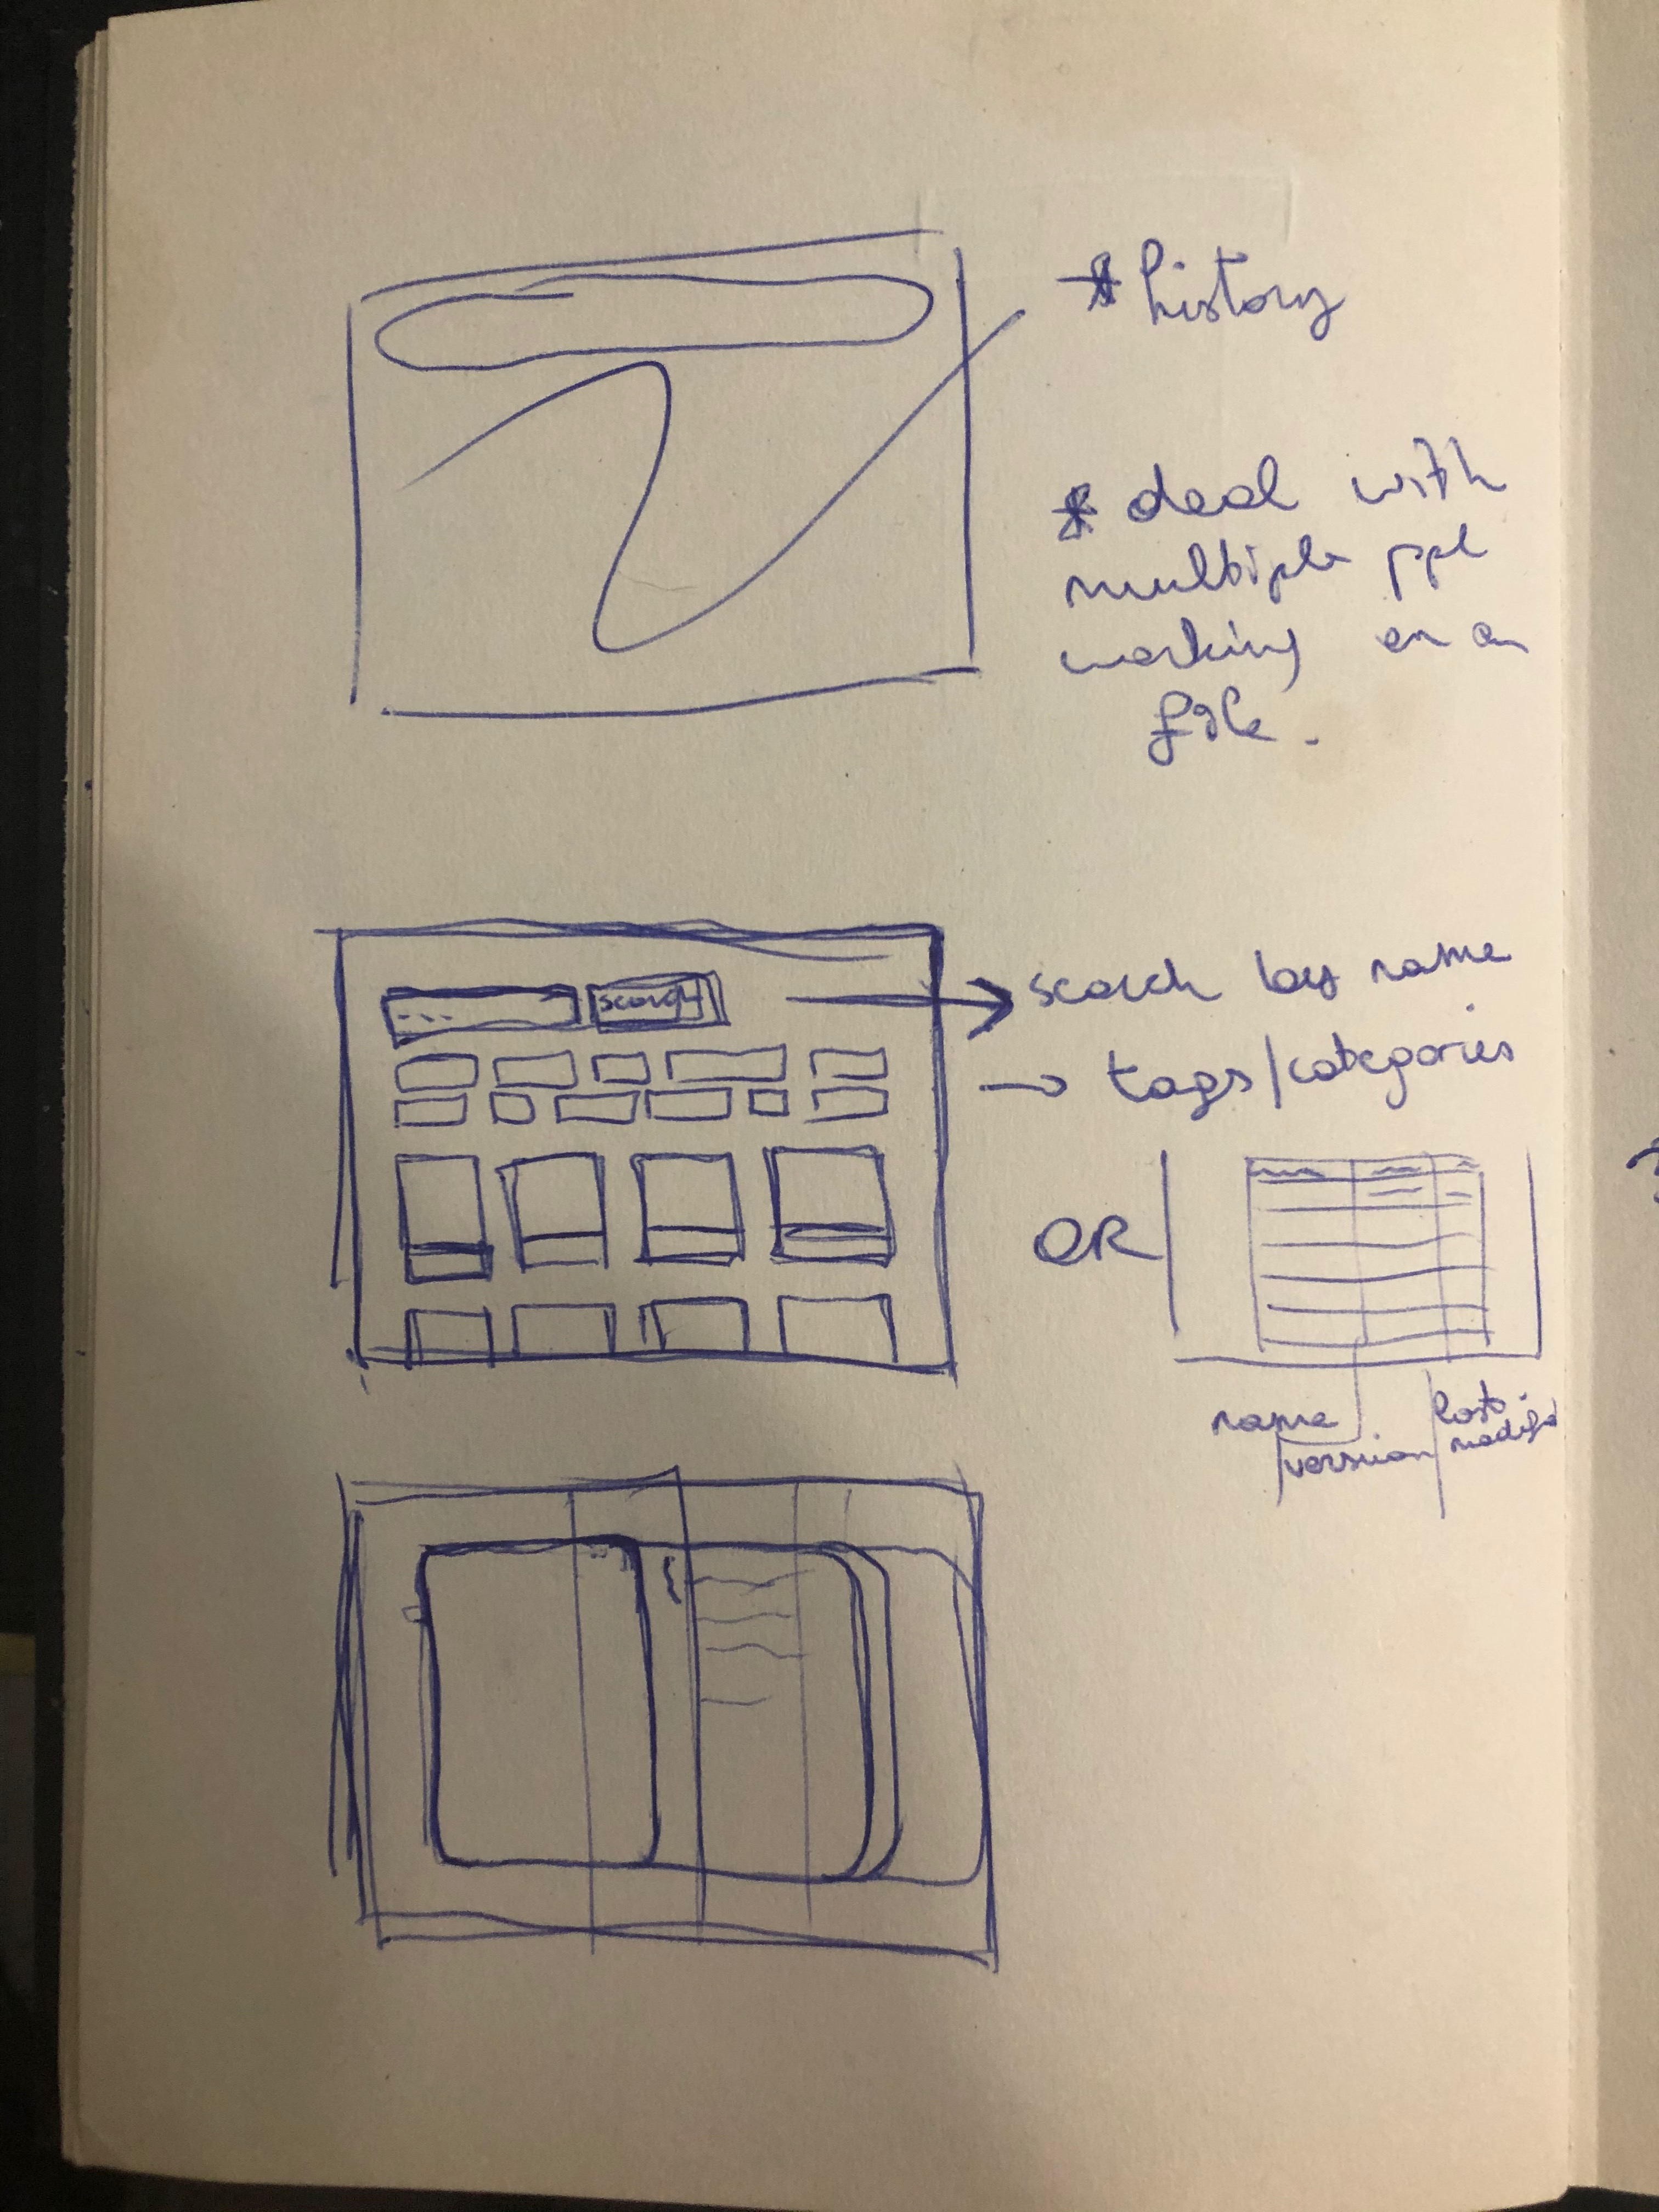 * history
* deal with
multiple ppl
working on a
file.
... search
→ search by name
→ tags/categories
OR
name
version
last
modified